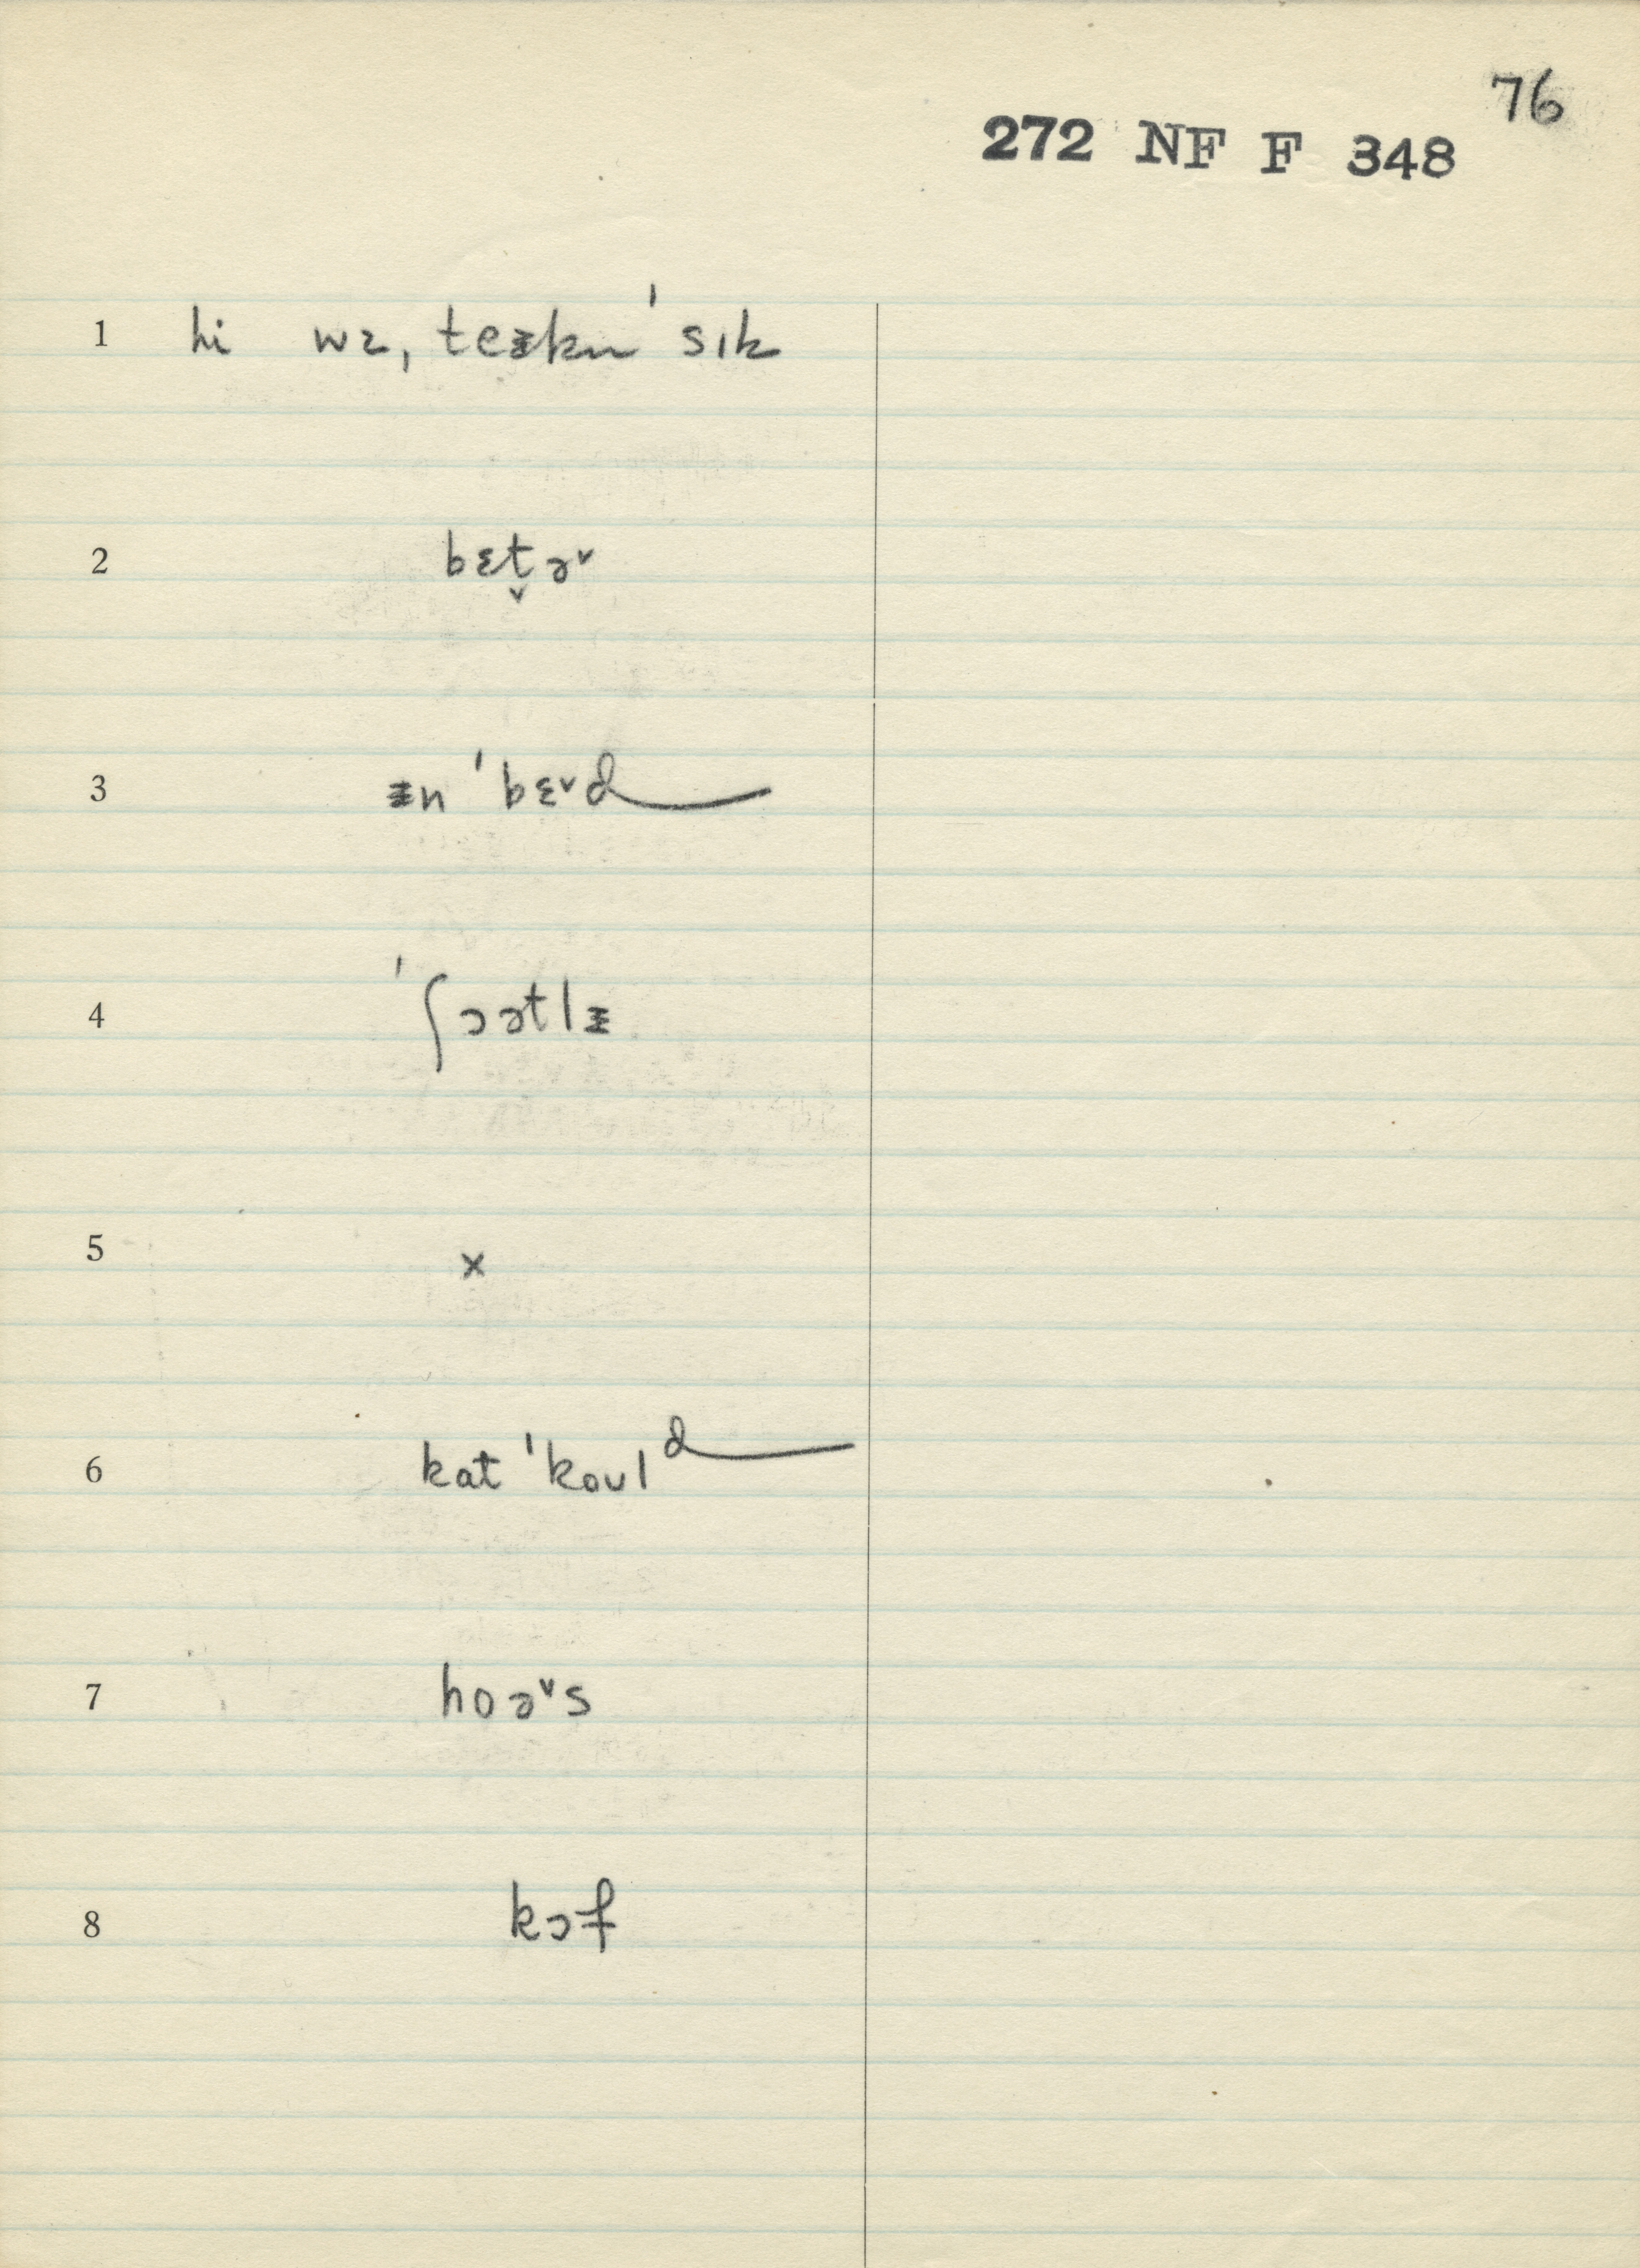 76
272 NF F 348
1 hi wɪ, teᵻkn ˈsɪk
2 bɛt̬ɚ
3 ᵻn ˈbɛᵛd
4 ˈʃɔətlᵻ
5 x
6 kat ˈkoʊld
7 hoəᵛs
8 kɔf